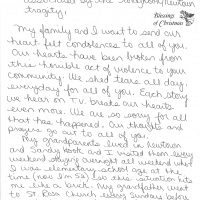 associated by the Sandyhook/Newtown
tragity,
Blessings
of Christmas
My family and I want to send our
heart felt condolences to all of you.
Our hearts have been broken from
this horrible act of violence to your
community. We shed tears all day,
everyday for all of you. Each story
we hear on T.V. breaks our hearts
even more. We are so sorry for all
that has happened. Our thoughts and
prayers go out to all of you.
My grandparents lived in Newtown
and Sandy Hook, and I visited them every
weekend staying overnight all weekend when
I was elementary school age at the
time (now I'm 54) so this situation hits
me like a brick. My grandfather went
to St. Rose Church every Sundays before